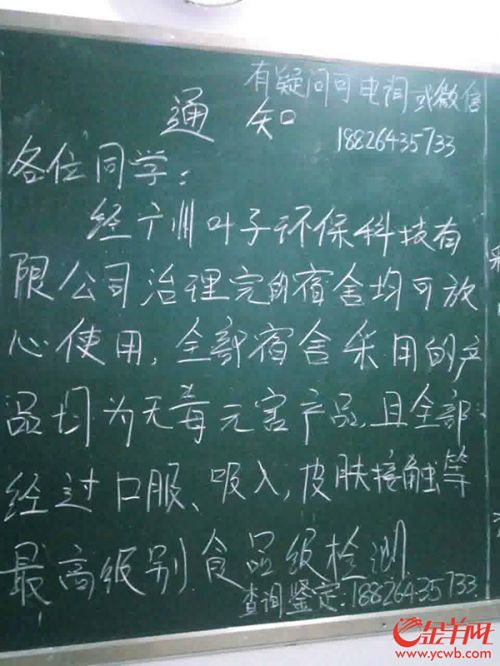 有疑问可电询或微信
18826435733
通知
各位同学：
经广州叶子环保科技有
限公司治理完的宿舍均可放
心使用，全部宿舍采用的产
品均为无毒无害产品，且全部
经过口服、吸入，皮肤接触等
最高级别食品级检测
查询鉴定：18826435733
金羊网
www.ycwb.com